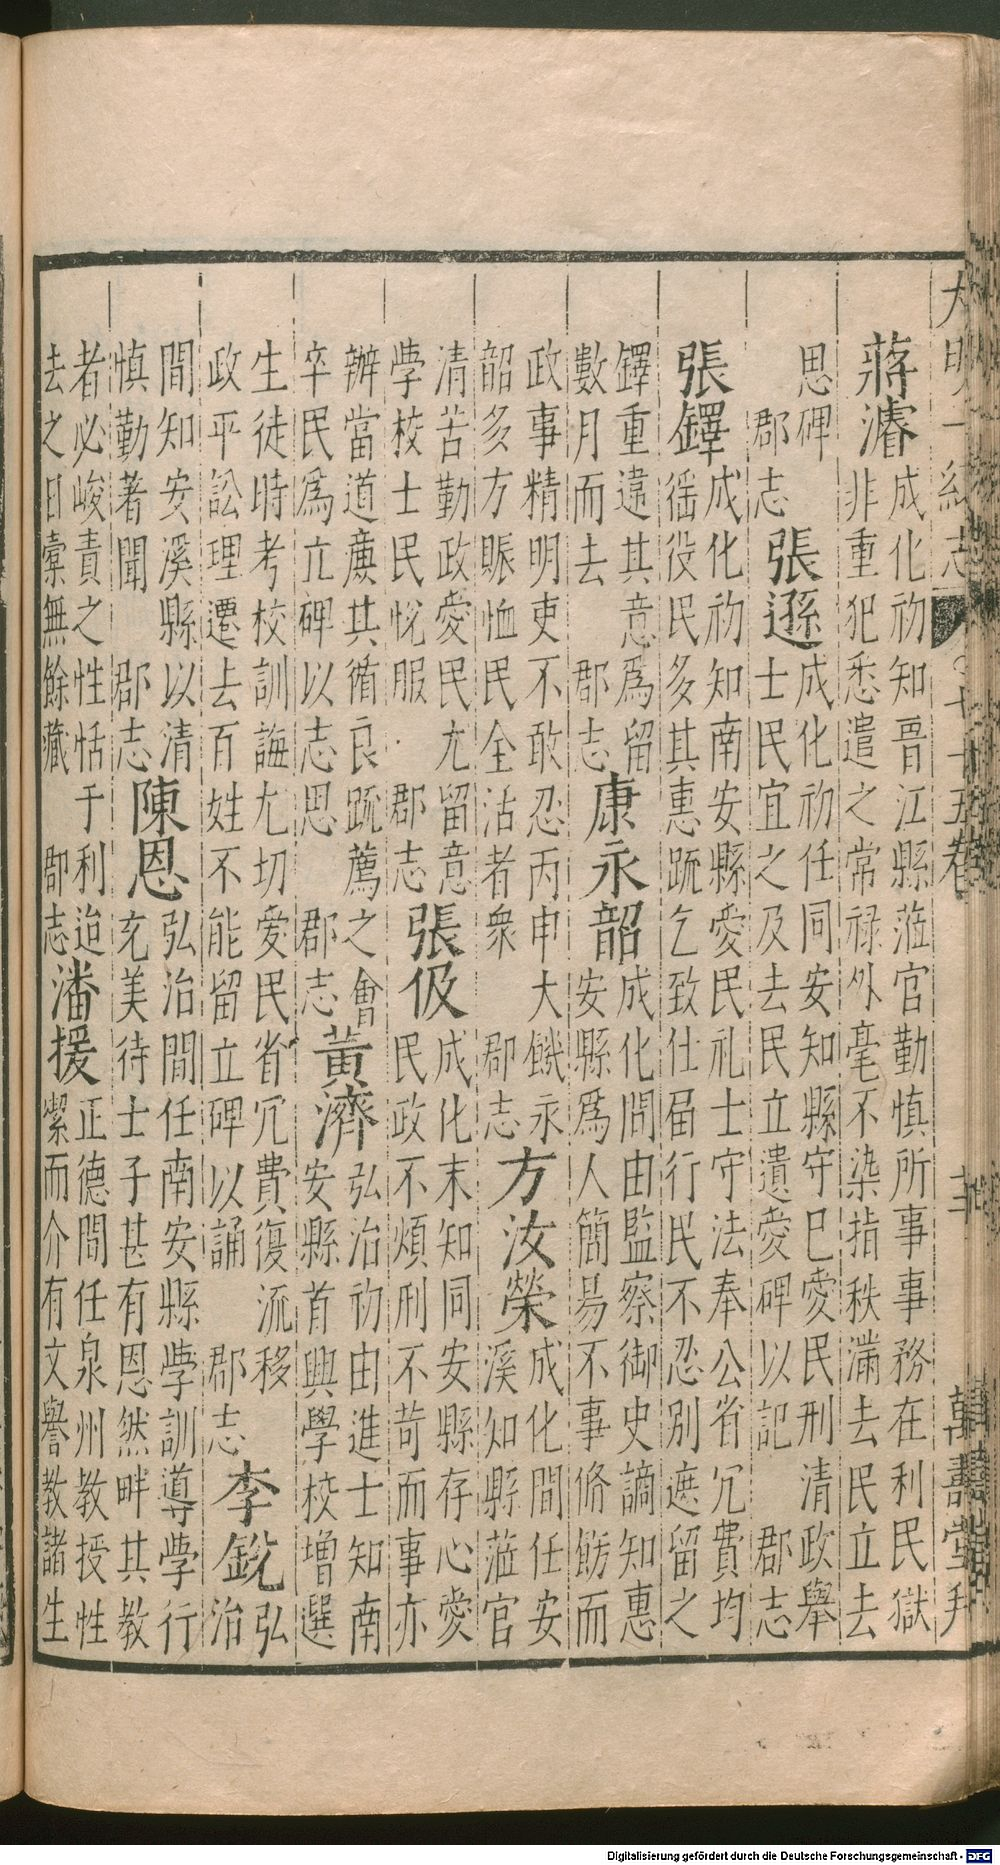 蔣濬
成化初知晋江縣蒞官勤慎所事事務在利民獄
非重犯悉遣之常禄外毫不染指秩滿去民立去
思碑
郡志
張遜
成化初任同安知縣守巳愛民刑清政舉
士民宜之及去民立遺愛碑以記 郡志
張鐸
成化初知南安縣愛民礼士守法奉公省冗費均
徭役民多其惠䟽乞致仕届行民不忍別遮留之
鐸重違其意爲留
數月而去 郡志
康永韶
成化間由監察御史謫知惠
安縣爲人簡易不事脩餙而
政事精明吏不敢忍丙申大饑永
韶多方賑恤民全活者衆 郡志
方汝榮
成化間任安
溪知縣蒞官
清苦勤政愛民尤留意
学校士民悅服 郡志
張伋
成化末知同安縣存心愛
民政不煩刑不苛而事亦
辦當道廉其循良䟽薦之會
卒民爲立碑以志思 郡志
黃濟
弘治初由進士知南
安縣首興學校增選
生徒時考校訓誨尤切愛民省冗費復流移
政平訟理遷去百姓不能留立碑以誦 郡志
李銳
弘
治
間知安溪縣以清
慎勤著聞 郡志
陳恩
弘治間任南安縣学訓導学行
充美待士子甚有恩然畔其教
者必峻責之性恬于利迨
去之日橐無餘藏 郡志
潘援
正德間任泉州教授性
潔而介有文譽教諸生
大明一統志 七十五卷
萬壽堂刊
Digitalisierung gefördert durch die Deutsche Forschungsgemeinschaft - DFG